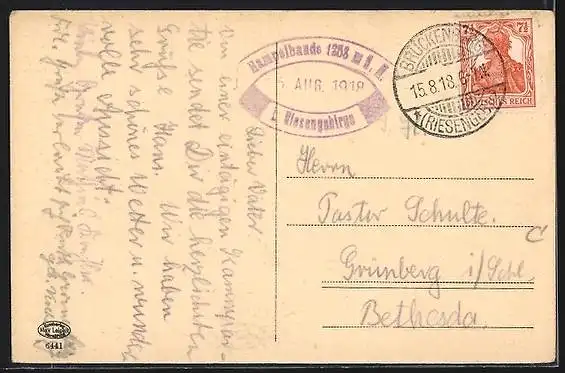 Hampelbaude 1258 m ü. M.
5 AUG. 1918
i. Riesengebirge
BRÜCKENBERG
15.8.18.
*(RIESENGEB.)
7½
DEUTSCHES REICH
Lieber Vater.
von einer eintägigen Kammpar-
tie sendet Dir die herzlichsten
Grüße Hans. Wir haben
sehr schönes Wetter u. wunder-
volle Aussicht.
Herrn
Pastor Schulte.
Grünberg i/Schl.
Bethesda.
C
Max Leipelt
6441